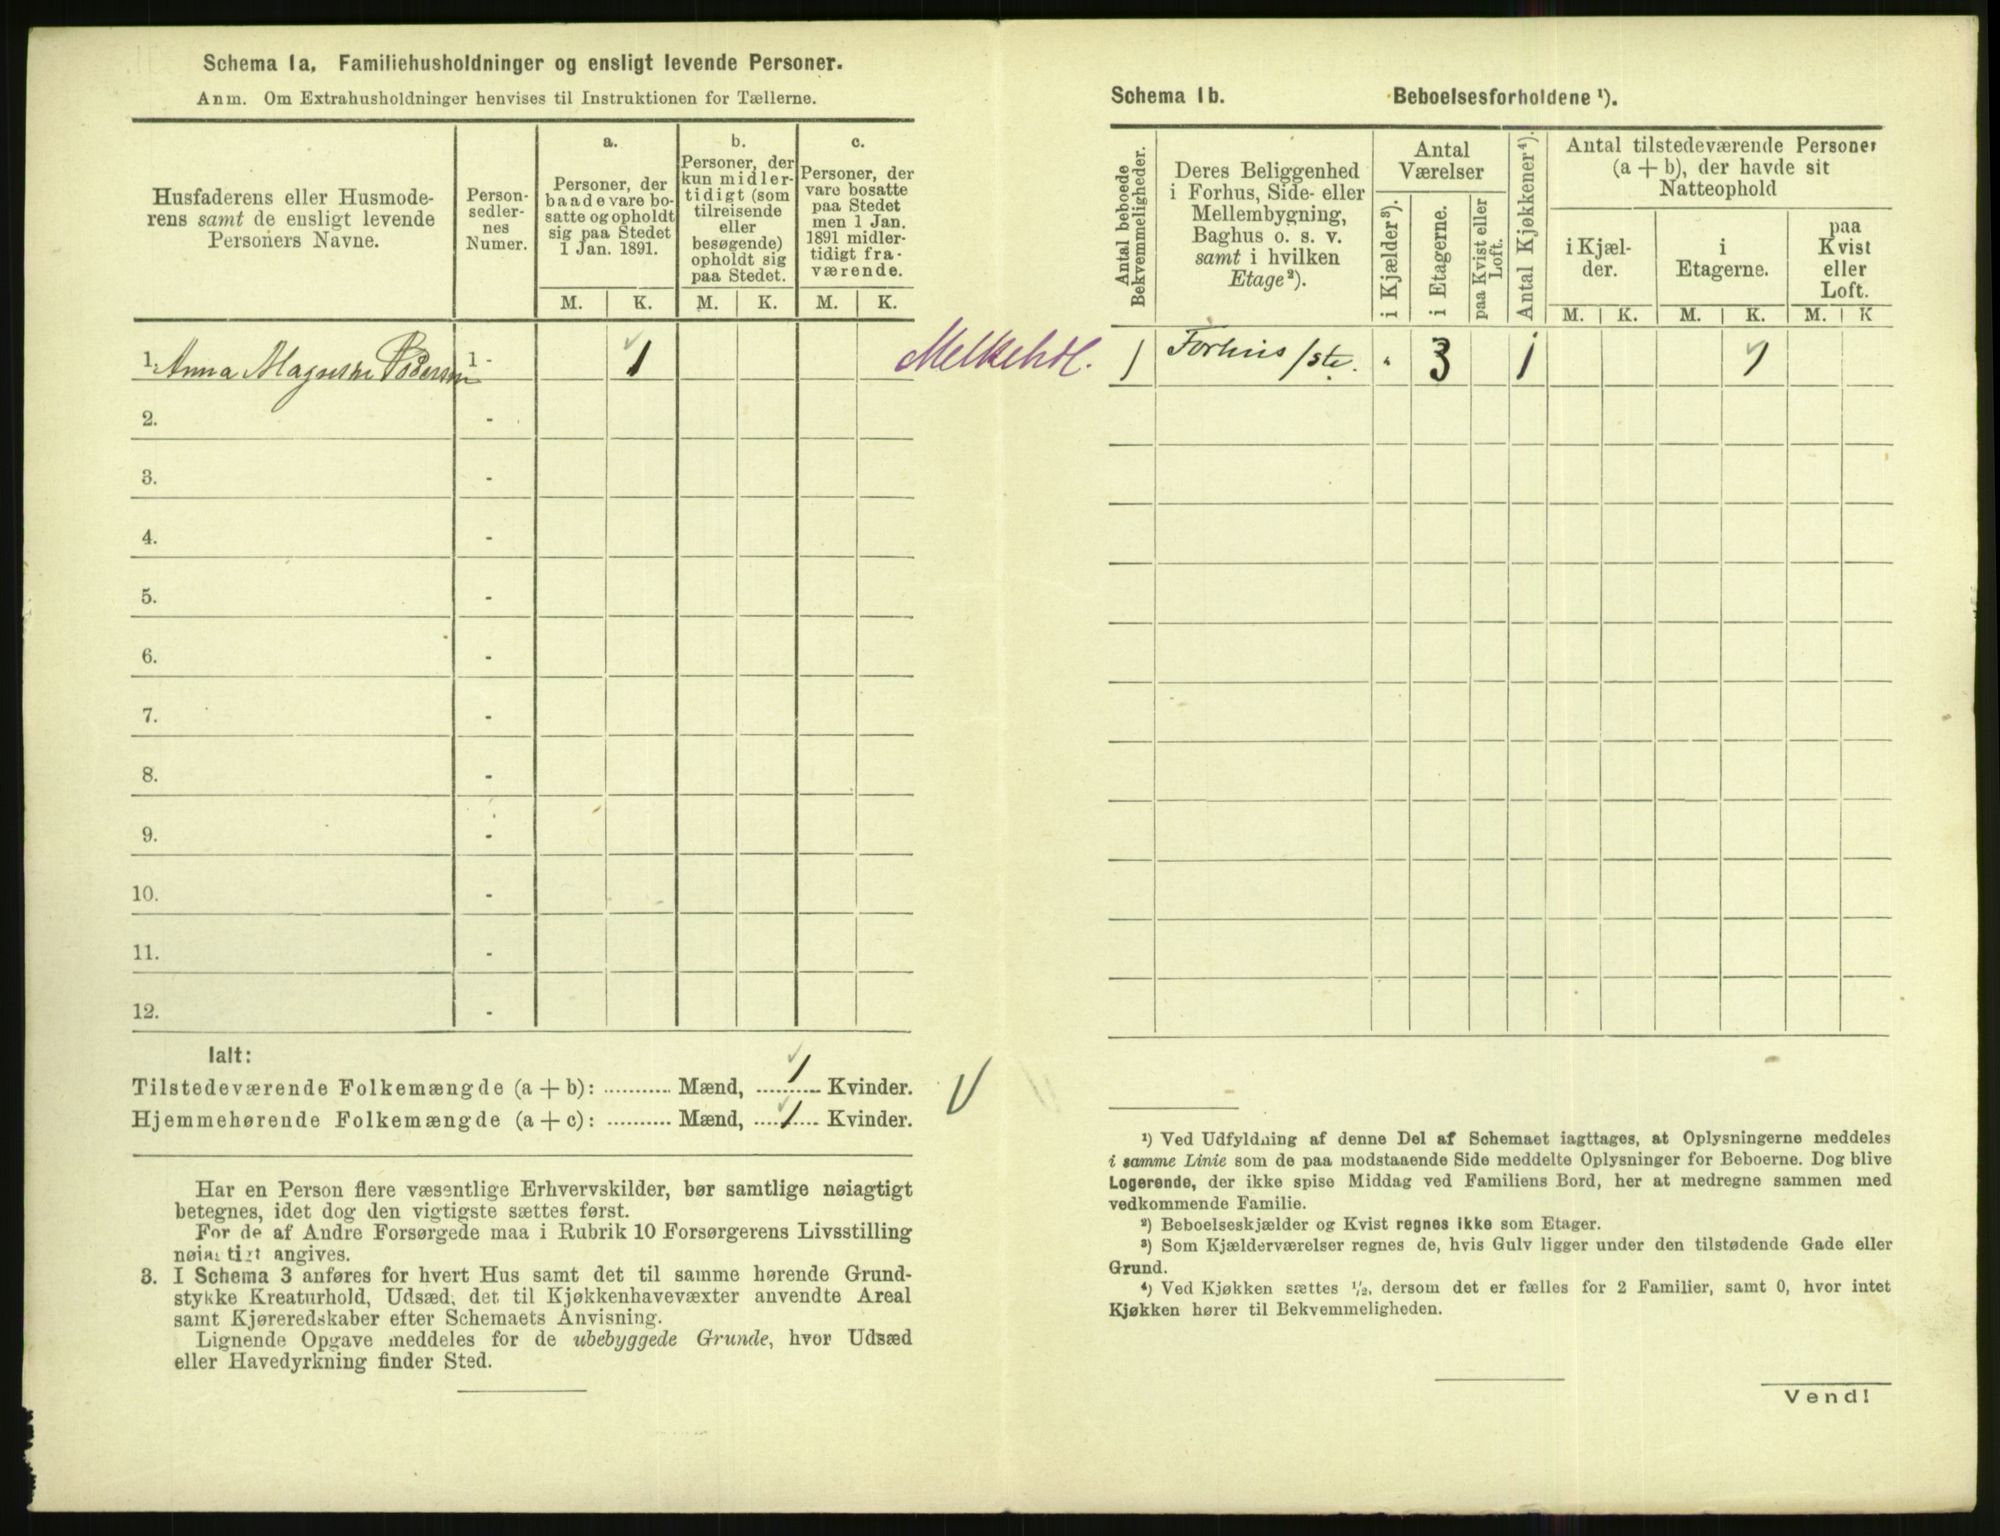 Schema 1a, Familiehusholdninger og ensligt levende Personer.
Anm. Om Extrahusholdninger henvises til Instruktionen for Tællerne.
Husfaderens eller Husmode-
rens samt de ensligt levende
Personers Navne.
Person-
sedler-
nes
Numer.
a.
Personer, der
baade vare bo-
satte og opholdt
sig paa Stedet
1 Jan. 1891.
b.
Personer, der
kun midler-
tidigt (som
tilreisende
eller
besøgende)
opholdt sig
paa Stedet.
c.
Personer, der
vare bosatte
paa Stedet
men 1 Jan.
1891 midler-
tidigt fra-
værende.
M. K. M. K. M. K.
1. Anna Magrethe Pedersen 1 - 1 Melkehdl.
2. -
3. -
4. -
5. -
6. -
7. -
8. -
9. -
10. -
11. -
12. -
Ialt:
Tilstedeværende Folkemængde (a + b): .......... Mænd, 1 Kvinder.
Hjemmehørende Folkemængde (a + c): .......... Mænd, 1 Kvinder.
Har en Person flere væsentlige Erhvervskilder, bør samtlige nøiagtigt
betegnes, idet dog den vigtigste sættes først.
For de af Andre Forsørgede maa i Rubrik 10 Forsørgerens Livsstilling
nøiagtigt angives.
3. I Schema 3 anføres for hvert Hus samt det til samme hørende Grund-
stykke Kreaturhold, Udsæd, det til Kjøkkenhavevæxter anvendte Areal
samt Kjøreredskaber efter Schemaets Anvisning.
Lignende Opgave meddeles for de ubebyggede Grunde, hvor Udsæd
eller Havedyrkning finder Sted.
Schema 1b. Beboelsesforholdene ¹).
Antal beboede
Bekvemmeligheder.
Deres Beliggenhed
i Forhus, Side- eller
Mellembygning,
Baghus o. s. v.
samt i hvilken
Etage²).
Antal
Værelser
i Kjælder³).
i Etagerne.
paa Kvist eller
Loft.
Antal Kjøkkener⁴).
Antal tilstedeværende Personer
(a + b), der havde sit
Natteophold
i Kjæl-
der.
i
Etagerne.
paa
Kvist
eller
Loft.
M. K. M. K. M. K
1 Forhus 1ste. " 3 1 1
¹) Ved Udfyldning af denne Del af Schemaet iagttages, at Oplysningerne meddeles
i samme Linie som de paa modstaaende Side meddelte Oplysninger for Beboerne. Dog blive
Logerende, der ikke spise Middag ved Familiens Bord, her at medregne sammen med
vedkommende Familie.
²) Beboelseskjælder og Kvist regnes ikke som Etager.
³) Som Kjælderværelser regnes de, hvis Gulv ligger under den tilstødende Gade eller
Grund.
⁴) Ved Kjøkken sættes ½, dersom det er fælles for 2 Familier, samt 0, hvor intet
Kjøkken hører til Bekvemmeligheden.
Vend!